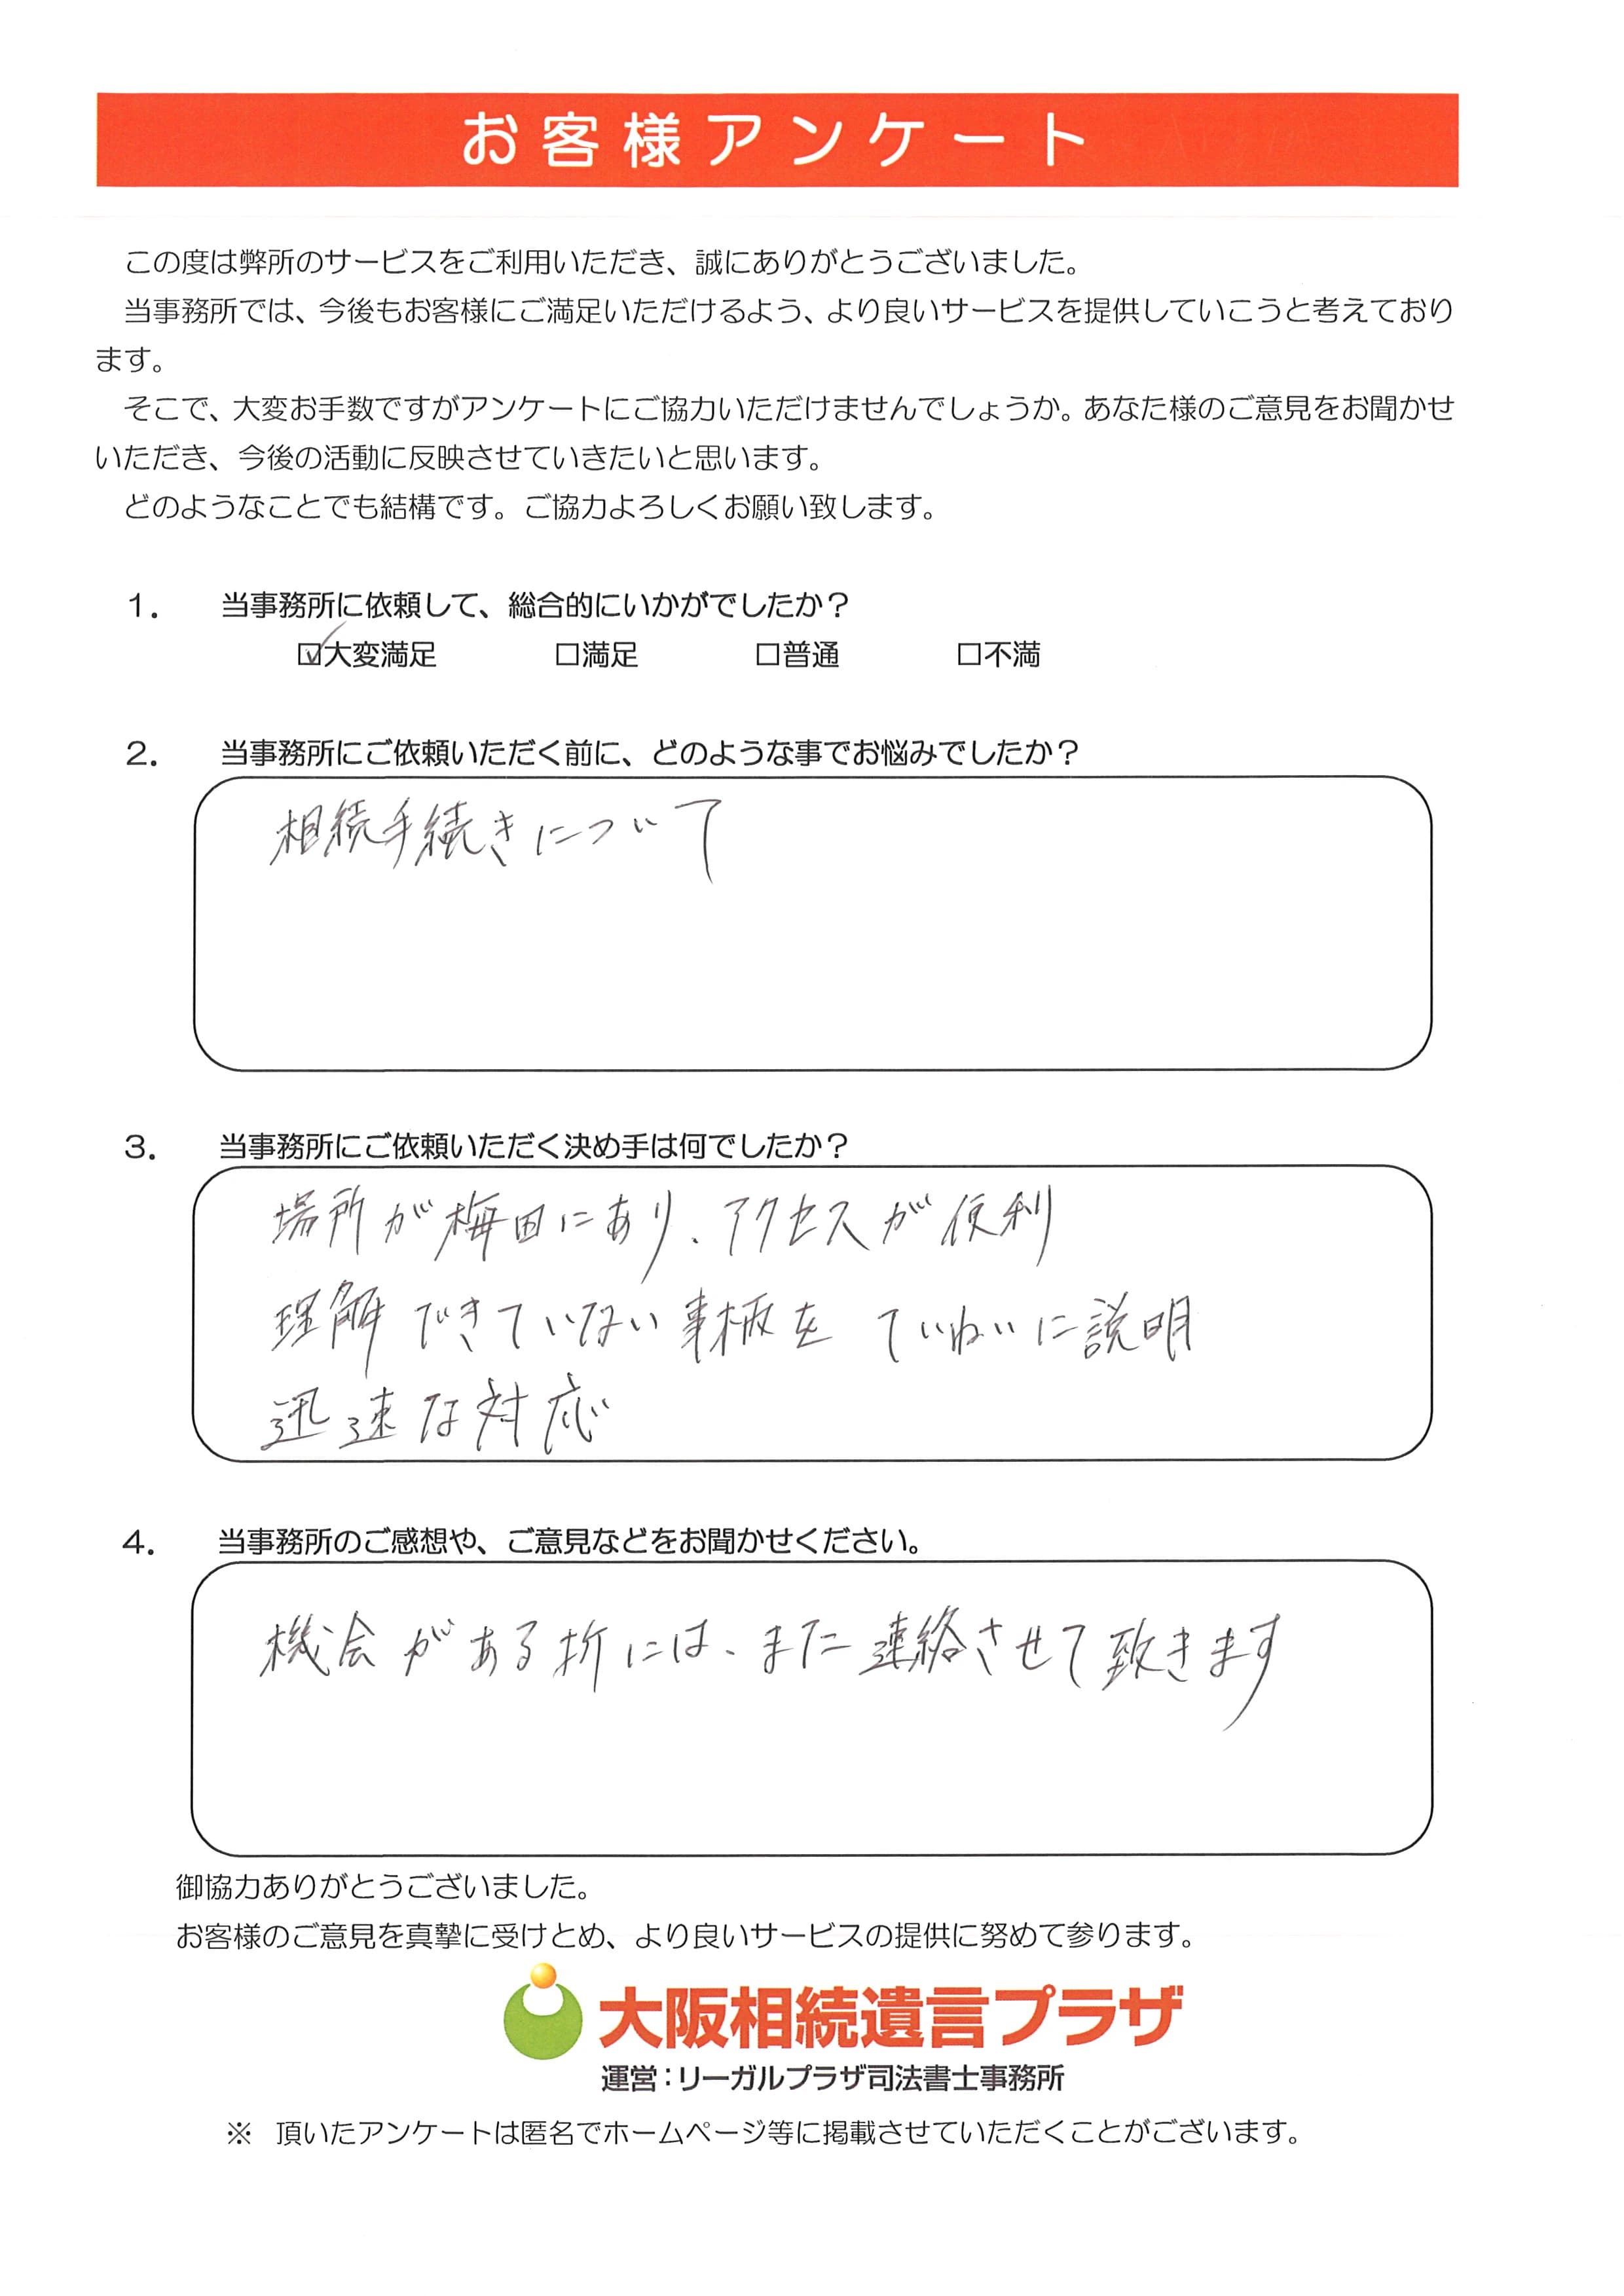 お客様アンケート
この度は弊所のサービスをご利用いただき、誠にありがとうございました。
当事務所では、今後もお客様にご満足いただけるよう、より良いサービスを提供していこうと考えており
ます。
そこで、大変お手数ですがアンケートにご協力いただけませんでしょうか。あなた様のご意見をお聞かせ
いただき、今後の活動に反映させていきたいと思います。
どのようなことでも結構です。ご協力よろしくお願い致します。
１．　当事務所に依頼して、総合的にいかがでしたか？
☑大変満足　□満足　□普通　□不満
２．　当事務所にご依頼いただく前に、どのような事でお悩みでしたか？
相続手続きについて
３．　当事務所にご依頼いただく決め手は何でしたか？
場所が梅田にあり、アクセスが便利
理解できていない事柄を ていねいに説明
迅速な対応
４．　当事務所のご感想や、ご意見などをお聞かせください。
機会がある折には、また連絡させて致きます
御協力ありがとうございました。
お客様のご意見を真摯に受けとめ、より良いサービスの提供に努めて参ります。
大阪相続遺言プラザ
運営：リーガルプラザ司法書士事務所
※　頂いたアンケートは匿名でホームページ等に掲載させていただくことがございます。